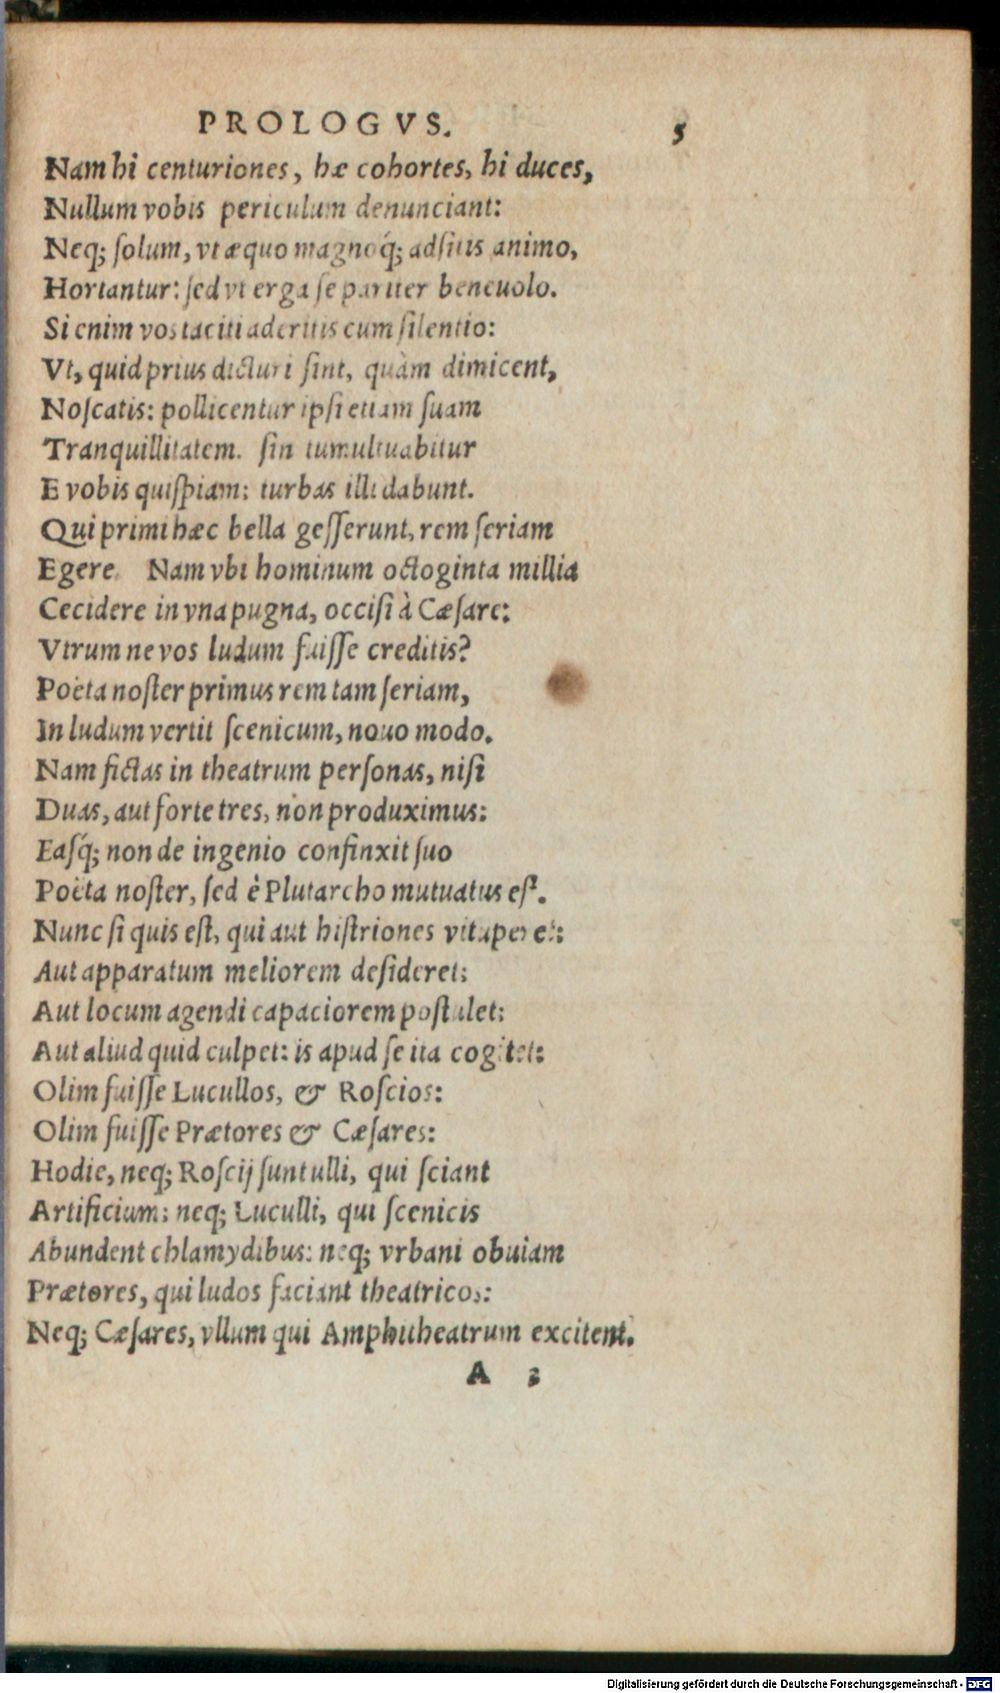 PROLOGVS. 5
Nam hi centuriones, hæ cohortes, hi duces,
Nullum vobis periculum denunciant:
Neq; ſolum, vt æquo magnoq́; adſitis animo,
Hortantur: ſed vt erga ſe pariter beneuolo.
Si enim vos taciti aderitis cum ſilentio:
Vt, quid prius dicturi ſint, quàm dimicent,
Noſcatis: pollicentur ipſi etiam ſuam
Tranquillitatem. ſin tumultuabitur
E vobis quiſpiam: turbas illi dabunt.
Qui primi hæc bella geſſerunt, rem ſeriam
Egere. Nam vbi hominum octoginta millia
Cecidere in vna pugna, occiſi à Cæſare:
Vtrum ne vos ludum fuiſſe creditis?
Poëta noſter primus rem tam ſeriam,
In ludum vertit ſcenicum, nouo modo.
Nam fictas in theatrum perſonas, niſi
Duas, aut forte tres, non produximus:
Eaſq́; non de ingenio confinxit ſuo
Poëta noſter, ſed è Plutarcho mutuatus eſt.
Nunc ſi quis eſt, qui aut hiſtriones vituperet:
Aut apparatum meliorem deſideret:
Aut locum agendi capaciorem poſtulet:
Aut aliud quid culpet: is apud ſe ita cogitet:
Olim fuiſſe Lucullos, & Roſcios:
Olim fuiſſe Prætores & Cæſares:
Hodie, neq; Roſcij ſunt ulli, qui ſciant
Artificium: neq; Luculli, qui ſcenicis
Abundent chlamydibus: neq; vrbani obuiam
Prætores, qui ludos faciant theatricos:
Neq; Cæſares, vllum qui Amphitheatrum excitent.
A 3
Digitalisierung gefördert durch die Deutsche Forschungsgemeinschaft - DFG